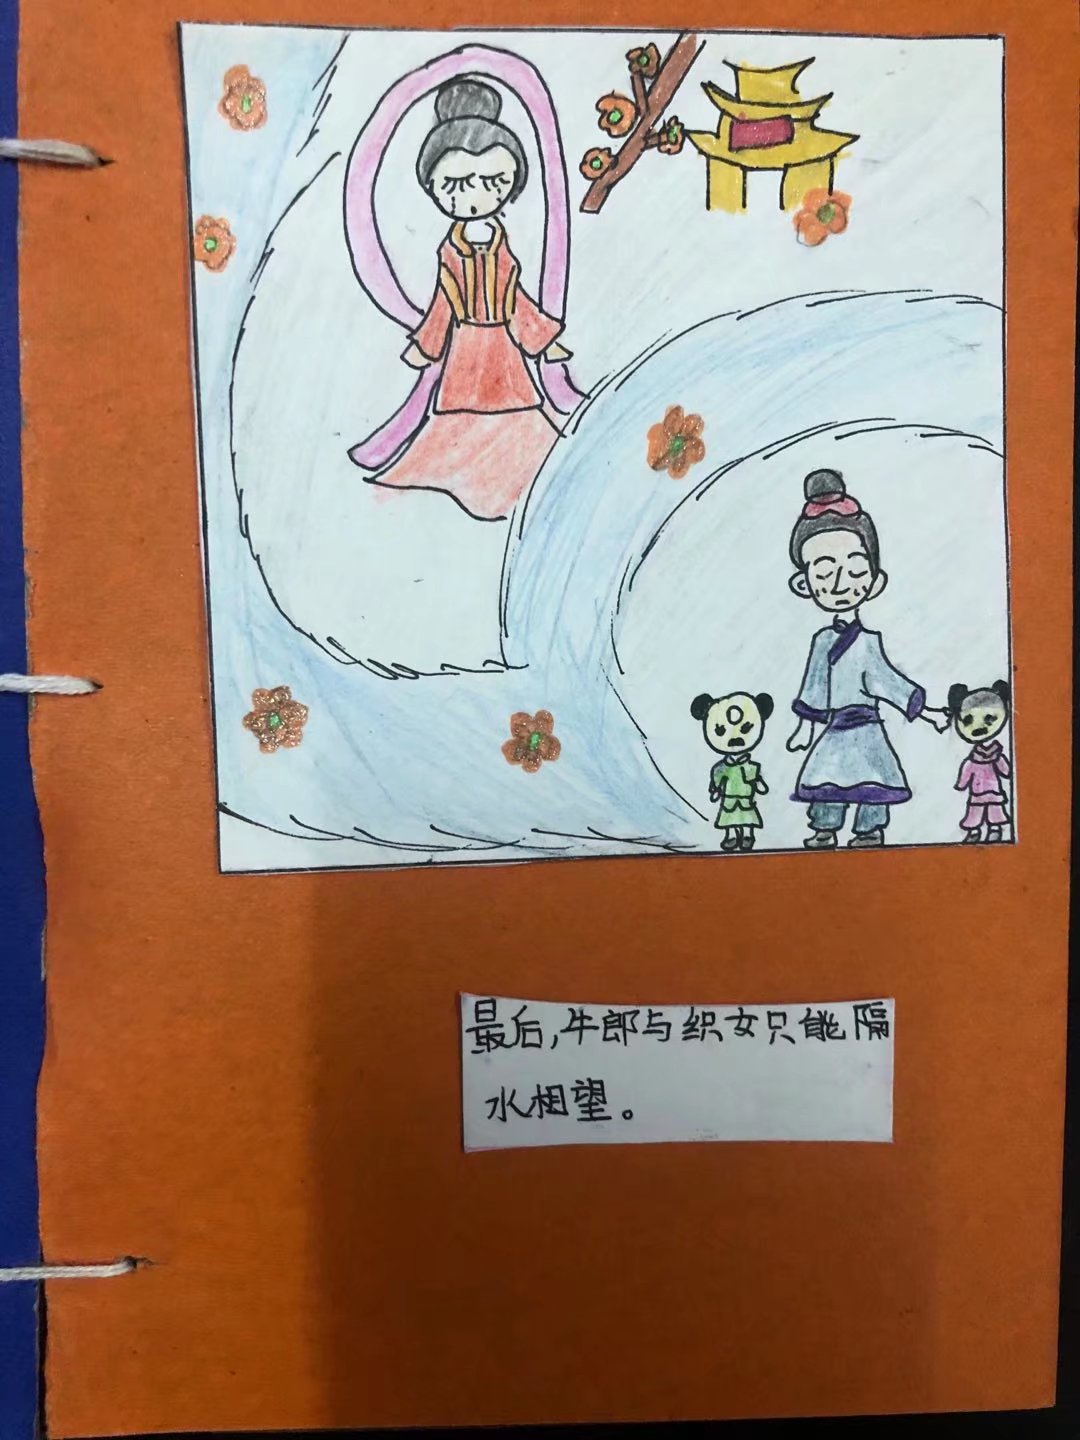 最后,牛郎与织女只能隔
水相望。